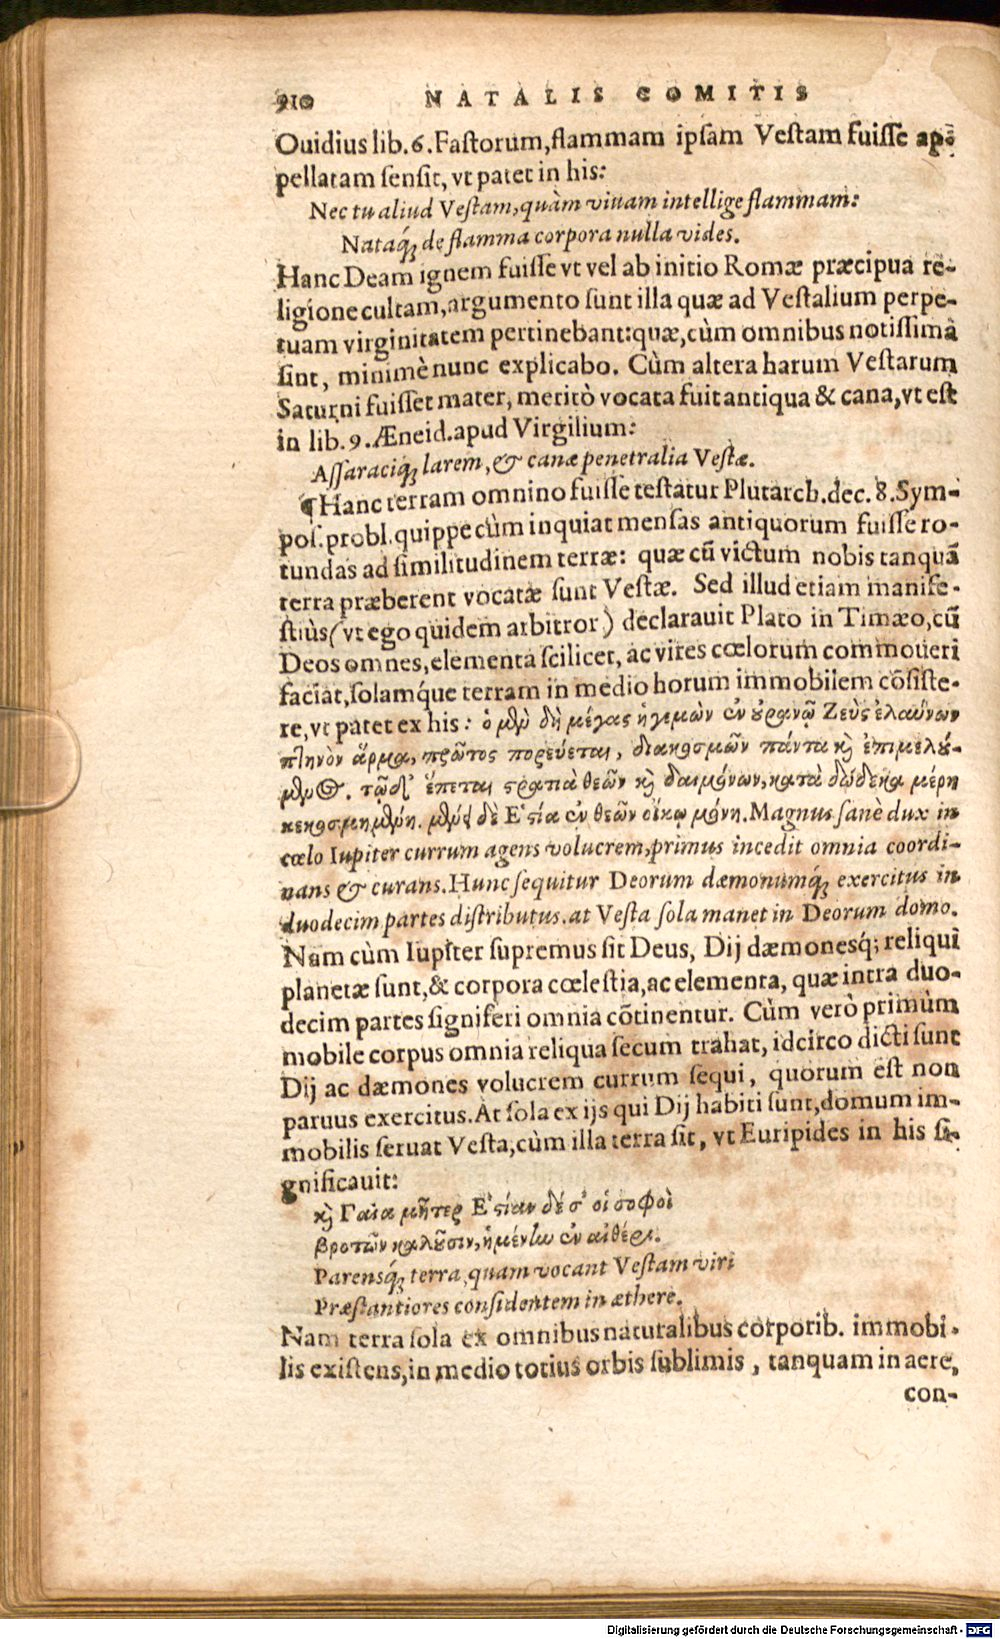 910 NATALIS COMITIS
Ouidius lib. 6. Fastorum, flammam ipsam Vestam fuisse ap-
pellatam sensit, vt patet in his:
Nec tu aliud Vestam, quàm viuam intellige flammam:
Nataq́; de flamma corpora nulla vides.
Hanc Deam ignem fuisse vt vel ab initio Romæ præcipua re-
ligione cultam, argumento sunt illa quæ ad Vestalium perpe-
tuam virginitatem pertinebant: quæ, cùm omnibus notissima
sint, minimè nunc explicabo. Cùm altera harum Vestarum
Saturni fuisset mater, meritò vocata fuit antiqua & cana, vt est
in lib. 9. Æneid. apud Virgilium:
Assaraciq́; larem, & canæ penetralia Vestæ.
¶ Hanc terram omnino fuisse testatur Plutarch. dec. 8. Sym-
pos. probl. quippe cùm inquiat mensas antiquorum fuisse ro-
tundas ad similitudinem terræ: quæ cũ victum nobis tanquã
terra præberent vocatæ sunt Vestæ. Sed illud etiam manife-
stiùs (vt ego quidem arbitror) declarauit Plato in Timæo, cũ
Deos omnes, elementa scilicet, ac vires cœlorum commoueri
faciat, solamq́ue terram in medio horum immobilem cõsiste-
re, vt patet ex his: ὁ μὲν δὴ μέγας ἡγεμὼν ἐν οὐρανῷ Ζεὺς ἐλαύνων
πτηνὸν ἅρμα, πρῶτος πορεύεται, διακοσμῶν πάντα καὶ ἐπιμελού-
μενος. τῷ δ' ἕπεται στρατιὰ θεῶν καὶ δαιμόνων, κατὰ δώδεκα μέρη
κεκοσμημένη. μένει δὲ Ἑστία ἐν θεῶν οἴκῳ μόνη. Magnus sanè dux in
cœlo Iupiter currum agens volucrem, primus incedit omnia coordi-
nans & curans. Hunc sequitur Deorum dæmonumq́; exercitus in
duodecim partes distributus. at Vesta sola manet in Deorum domo.
Nam cùm Iupiter supremus sit Deus, Dij dæmonesq́; reliqui
planetæ sunt, & corpora cœlestia, ac elementa, quæ intra duo-
decim partes signiferi omnia cõtinentur. Cùm verò primùm
mobile corpus omnia reliqua secum trahat, idcirco dicti sunt
Dij ac dæmones volucrem currum sequi, quorum est non
paruus exercitus. At sola ex ijs qui Dij habiti sunt, domum im-
mobilis seruat Vesta, cùm illa terra sit, vt Euripides in his si-
gnificauit:
καὶ Γαῖα μῆτερ Ἑστίαν δέ σ' οἱ σοφοὶ
βροτῶν καλοῦσιν, ἡμένην ἐν αἰθέρι.
Parensq́; terra, quam vocant Vestam viri
Præstantiores considentem in æthere.
Nam terra sola ex omnibus naturalibus corporib. immobi-
lis existens, in medio totius orbis sublimis, tanquam in aere,
con-
Digitalisierung gefördert durch die Deutsche Forschungsgemeinschaft - DFG